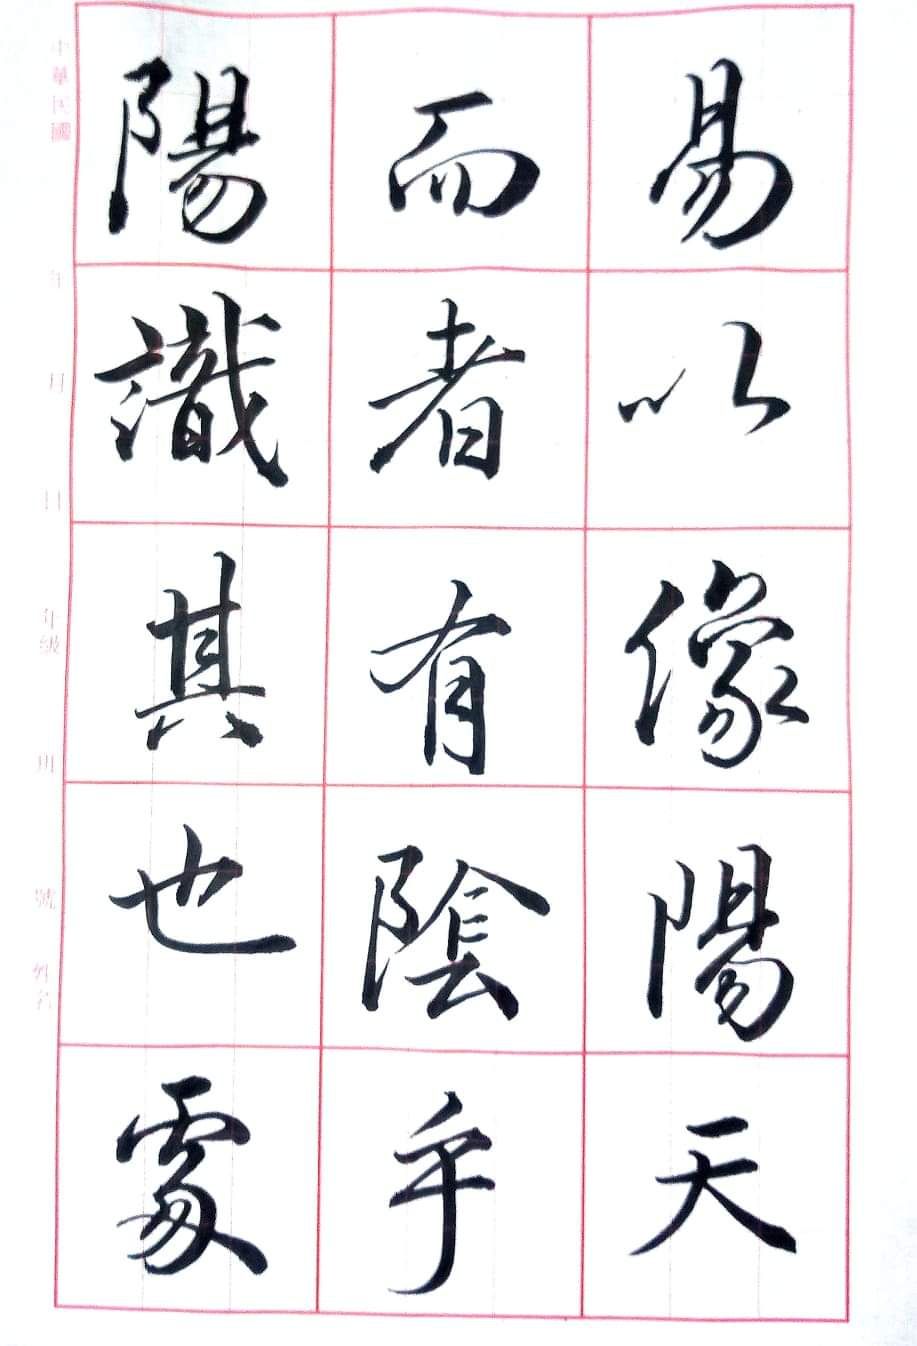 陽而易
識者以
其有像
也陰陽
處乎天
中華民國 年 月 日 年級 班 號 姓名